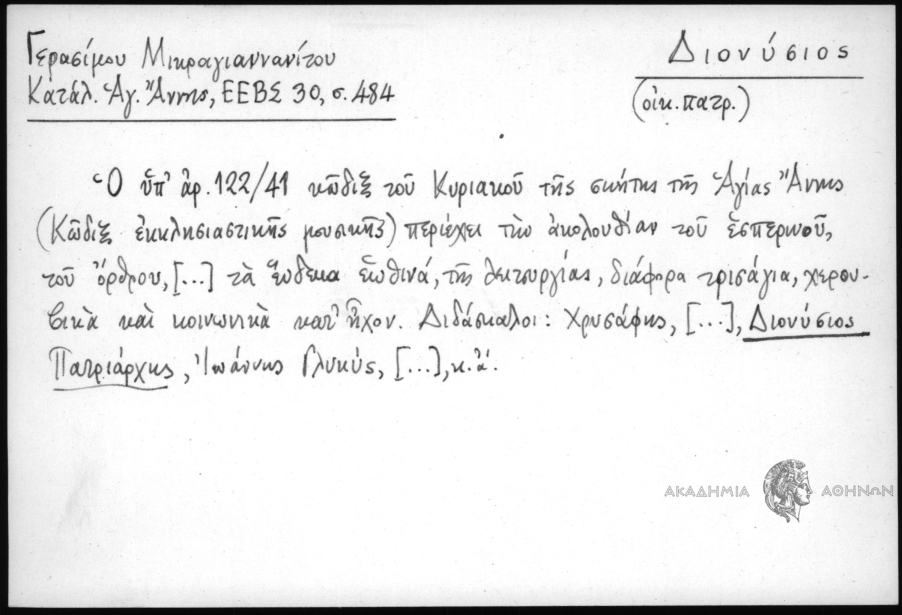 Γερασίμου Μικραγιαννανίτου
Κατάλ. Ἁγ. Ἄννης, ΕΕΒΣ 30, σ. 484
Διονύσιος
(οἰκ. πατρ.)
Ὁ ὑπ' ἀρ. 122/41 κῶδιξ τοῦ Κυριακοῦ τῆς σκήτης τῆς Ἁγίας Ἄννης
(Κῶδιξ ἐκκλησιαστικῆς μουσικῆς) περιέχει τὴν ἀκολουθίαν τοῦ ἑσπερινοῦ,
τοῦ ὄρθρου, [...] τὰ ἕνδεκα ἑωθινά, τῆς λειτουργίας, διάφορα τρισάγια, χερου-
βικὰ καὶ κοινωνικὰ κατ' ἦχον. Διδάσκαλοι: Χρυσάφης, [...], Διονύσιος
Πατριάρχης, Ἰωάννης Γλυκύς, [...], κ.ἄ.
ΑΚΑΔΗΜΙΑ ΑΘΗΝΩΝ